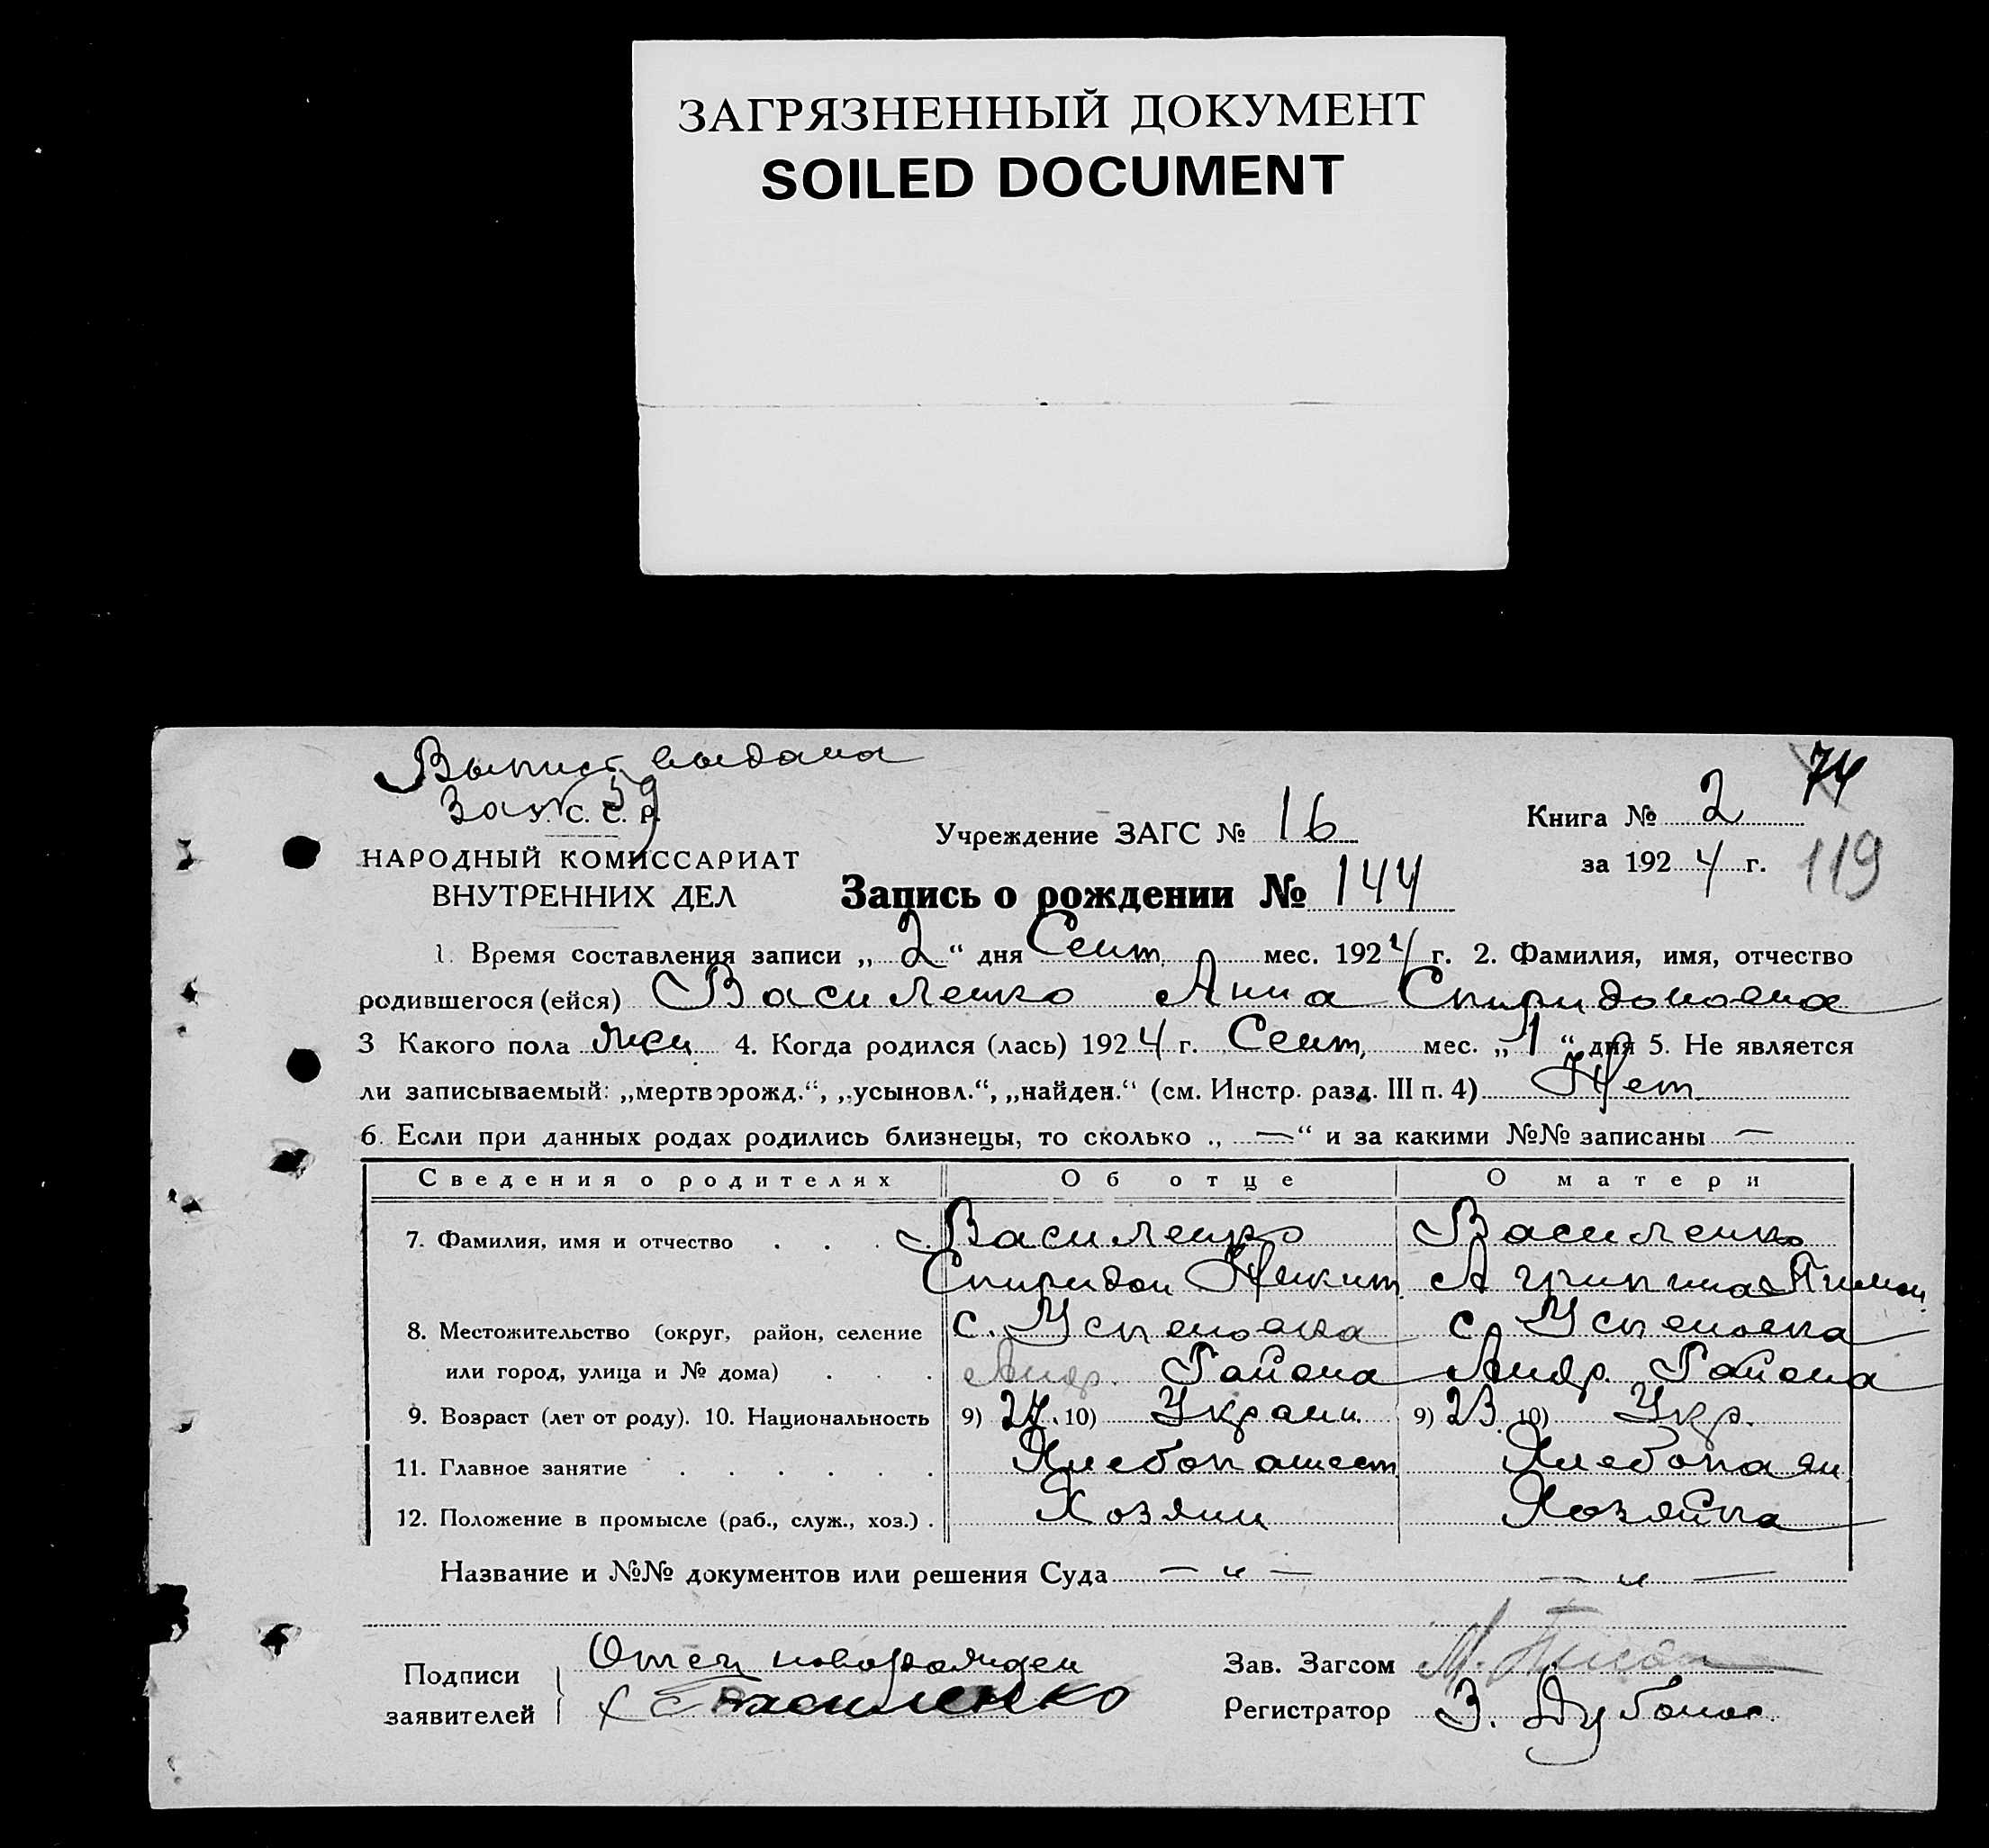 ЗАГРЯЗНЕННЫЙ ДОКУМЕНТ
SOILED DOCUMENT
Выпис выдана
За № 59
У. С. С. Р.
НАРОДНЫЙ КОМИССАРИАТ
ВНУТРЕННИХ ДЕЛ
Учреждение ЗАГС № 16
Книга № 2 74
за 1924 г. 119
Запись о рождении № 144
1. Время составления записи „ 2 “ дня Сент. мес. 1924 г. 2. Фамилия, имя, отчество
родившегося (ейся) Василенко Анна Спиридоновна
3 Какого пола жен 4. Когда родился (лась) 1924 г. Сент. мес. „ 1 “ дня 5. Не является
ли записываемый: „мертворожд.“, „усыновл.“, „найден.“ (см. Инстр. разд. III п. 4) Нет
6. Если при данных родах родились близнецы, то сколько „ — “ и за какими №№ записаны —
Сведения о родителях Об отце О матери
7. Фамилия, имя и отчество . . . Василенко Василенко
Спиридон Никит. Агрипина Пимон.
8. Местожительство (округ, район, селение с. Успеновка с. Успеновка
или город, улица и № дома) . . . Андр. Района Андр. Района
9. Возраст (лет от роду). 10. Национальность 9) 27. 10) Украин 9) 23 10) Укр.
11. Главное занятие . . . . . . Хлебопашест Хлебопаш
12. Положение в промысле (раб., служ., хоз.) . Хозяин Хозяйка
Название и №№ документов или решения Суда — „ — — „ —
Подписи заявителей Отец новорожден
Василенко
Зав. Загсом
Регистратор З.